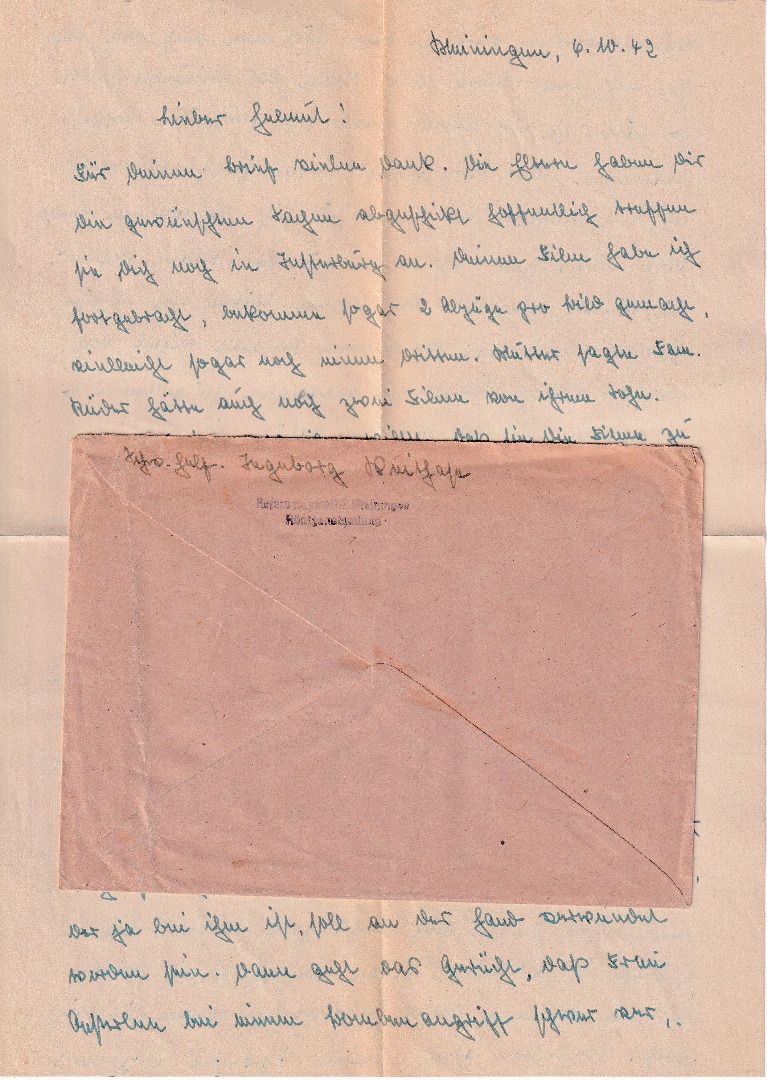 Meiningen, 6.10.42
Lieber Helmut!
Für Deinen Brief vielen Dank. Die Eltern haben Dir
die gewünschten Sachen abgeschikt hoffentlich treffen
sie Dich noch in Insterburg an. Deinen Film habe ich
fortgebracht, bekomme sogar 2 Abzüge pro Bild gemacht,
vielleicht sogar noch einen dritten. Mutter sagte Fam.
hätte auch noch zwei Filme von ihrem Sohn.
daß sie die Filme zu
Schw. Helf. Ingeborg
Reservelazarett Meiningen
Röntgenabteilung
der ja bei ihm ist, soll an der Hand verwundet
worden sein. Dann geht das Gerücht, daß Frau
bei einem Bombenangriff schwer ver,.